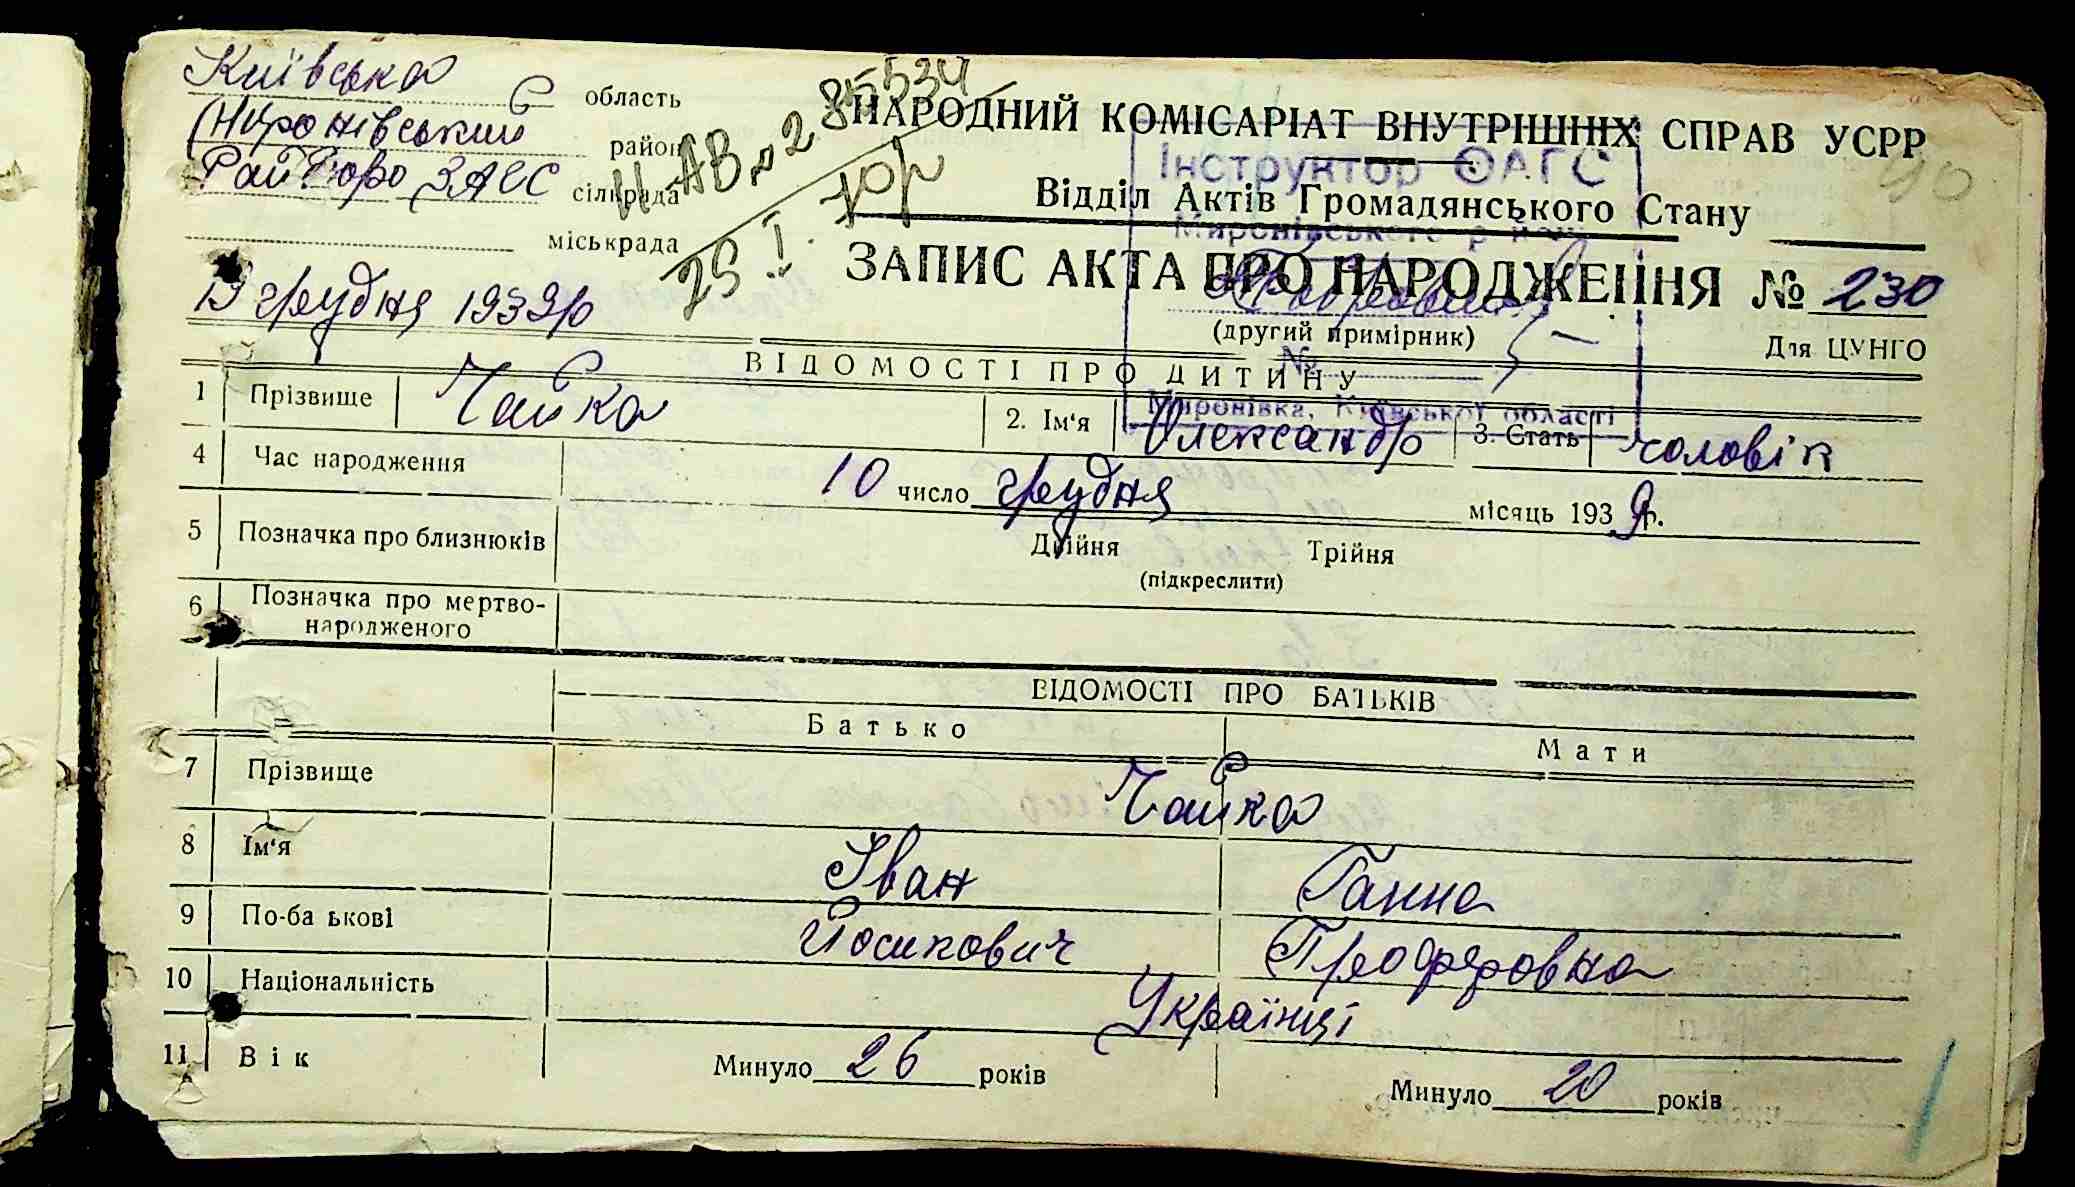 Київська область
Миронівський район
Райбюро ЗАГС сілкрада
міськрада
НАРОДНИЙ КОМІСАРІАТ ВНУТРІШНІХ СПРАВ УСРР
Інструктор ОАГС
Відділ Актів Громадянського Стану
Миронівського р-ну
ЗАПИС АКТА ПРО НАРОДЖЕННЯ № 230
19 грудня 1939р
(другий примірник)
Для ЦУНГО
№
ВІДОМОСТІ ПРО ДИТИНУ
Миронівка, Київської області
1 Прізвище Чайка 2. Ім'я Олександр 3. Стать чоловік
4 Час народження 10 число грудня місяць 1939р.
5 Позначка про близнюків Двійня Трійня
(підкреслити)
6 Позначка про мертво-
народженого
ВІДОМОСТІ ПРО БАТЬКІВ
Батько Мати
7 Прізвище Чайка
8 Ім'я Іван Ганна
9 По-ба ькові Йосипович
10 Національність Українці
11 Вік Минуло 26 років Минуло 20 років